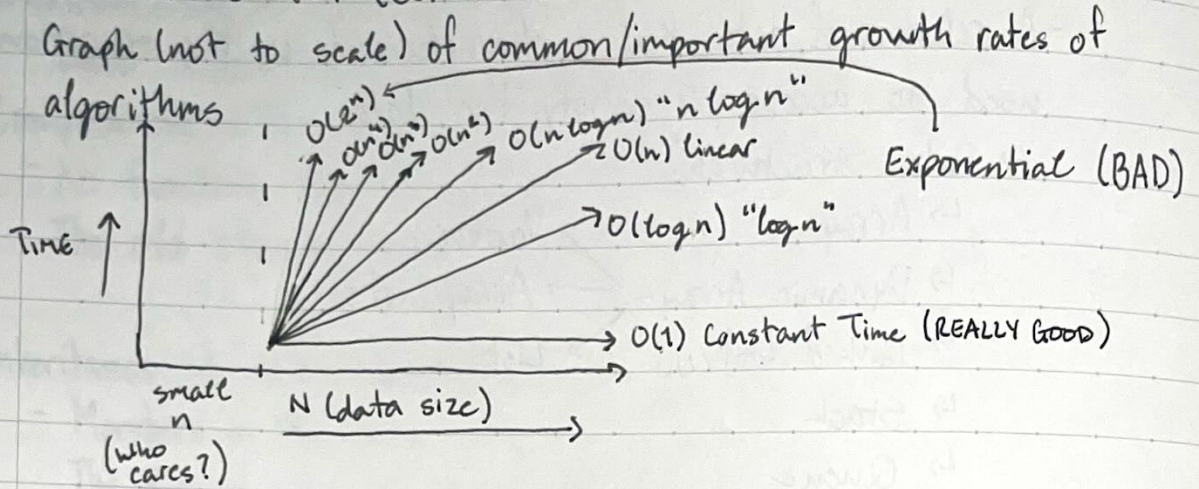 Graph (not to scale) of common/important growth rates of
algorithms
O(2ⁿ)
O(n⁴)
O(n³)
O(n²)
O(n log n) "n log n"
O(n) linear
Exponential (BAD)
O(log n) "log n"
TIME
O(1) Constant Time (REALLY GOOD)
small
n
(who
cares?)
N (data size)